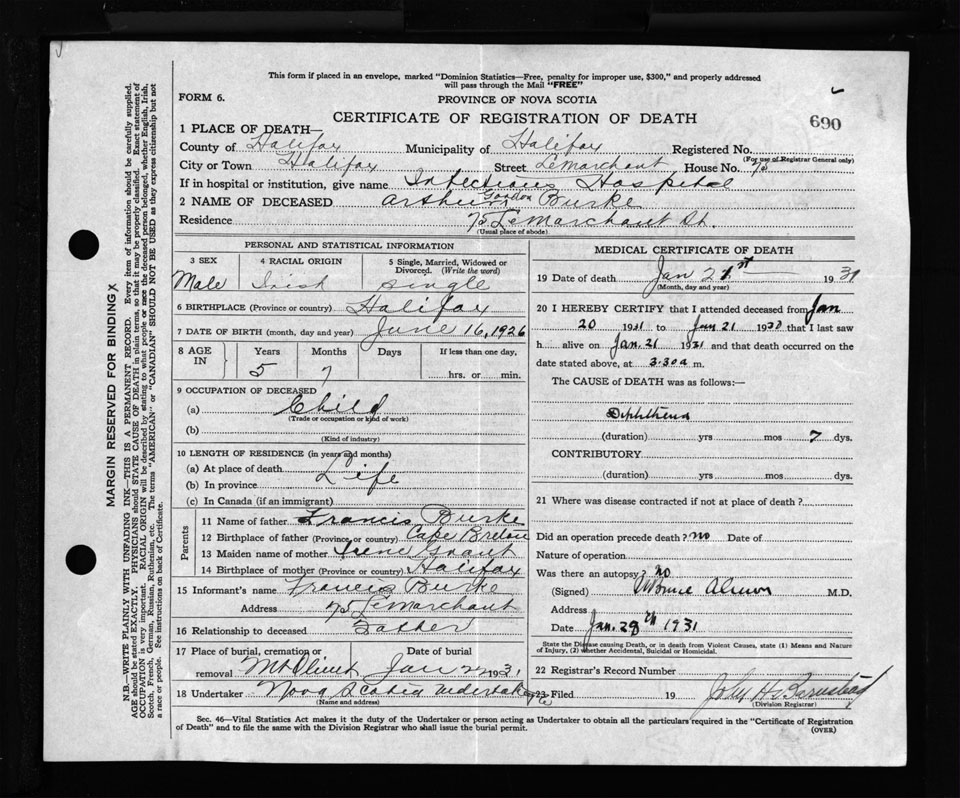 This form if placed in an envelope, marked "Dominion Statistics—Free, penalty for improper use, $300," and properly addressed
will pass through the Mail "FREE"
FORM 6.
PROVINCE OF NOVA SCOTIA
CERTIFICATE OF REGISTRATION OF DEATH
690
1 PLACE OF DEATH—
County of Halifax Municipality of Halifax Registered No.
(For use of Registrar General only)
City or Town Halifax Street LeMarchant House No. 75
If in hospital or institution, give name Infectious Hospital
2 NAME OF DECEASED Arthur Gordon Burke
Residence 75 LeMarchant St.
(Usual place of abode)
PERSONAL AND STATISTICAL INFORMATION
3 SEX 4 RACIAL ORIGIN 5 Single, Married, Widowed or Divorced. (Write the word)
Male Irish Single
6 BIRTHPLACE (Province or country) Halifax
7 DATE OF BIRTH (month, day and year) June 16, 1926
8 AGE IN Years Months Days If less than one day,
5 7 hrs. or min.
9 OCCUPATION OF DECEASED
(a) Child
(Trade or occupation or kind of work)
(b)
(Kind of industry)
10 LENGTH OF RESIDENCE (in years and months)
(a) At place of death
(b) In province Life
(c) In Canada (if an immigrant)
Parents
11 Name of father Francis Burke
12 Birthplace of father (Province or country) Cape Breton
13 Maiden name of mother Irene Grant
14 Birthplace of mother (Province or country) Halifax
15 Informant's name Francis Burke
Address 75 LeMarchant
16 Relationship to deceased Father
17 Place of burial, cremation or removal Mt Olivet Date of burial Jan 22 1931
18 Undertaker Nova Scotia Undertaking Co
(Name and address)
MEDICAL CERTIFICATE OF DEATH
19 Date of death Jan 21st 1931
(Month, day and year)
20 I HEREBY CERTIFY that I attended deceased from Jan
20 1931 to Jan 21 193 that I last saw
h alive on Jan. 21 1931 and that death occurred on the
date stated above, at 3.30 a m.
The CAUSE of DEATH was as follows:—
Diphtheria
(duration) yrs mos 7 dys.
CONTRIBUTORY
(duration) yrs mos dys.
21 Where was disease contracted if not at place of death?
Did an operation precede death? no Date of
Nature of operation
Was there an autopsy? no
(Signed) M.D.
Address
Date Jan. 28th 1931
State the Disease causing Death, or in death from Violent Causes, state (1) Means and Nature
of Injury, (2) whether Accidental, Suicidal or Homicidal.
22 Registrar's Record Number
23 Filed 19 John H. Barnstead
(Division Registrar)
Sec. 46—Vital Statistics Act makes it the duty of the Undertaker or person acting as Undertaker to obtain all the particulars required in the "Certificate of Registration
of Death" and to file the same with the Division Registrar who shall issue the burial permit.
(OVER)
MARGIN RESERVED FOR BINDING X
N.B.—WRITE PLAINLY WITH UNFADING INK—THIS IS A PERMANENT RECORD. Every item of information should be carefully supplied.
AGE should be stated EXACTLY. PHYSICIANS should STATE CAUSE OF DEATH in plain terms, so that it may be properly classified. Exact statement of
OCCUPATION is very important. RACIAL ORIGIN will be described by stating to what people or race the deceased person belonged, whether English, Irish,
Scotch, French, German, Russian, Ruthenian, etc. The terms "AMERICAN" or "CANADIAN" SHOULD NOT BE USED as they express citizenship but not
a race or people. See instructions on back of Certificate.